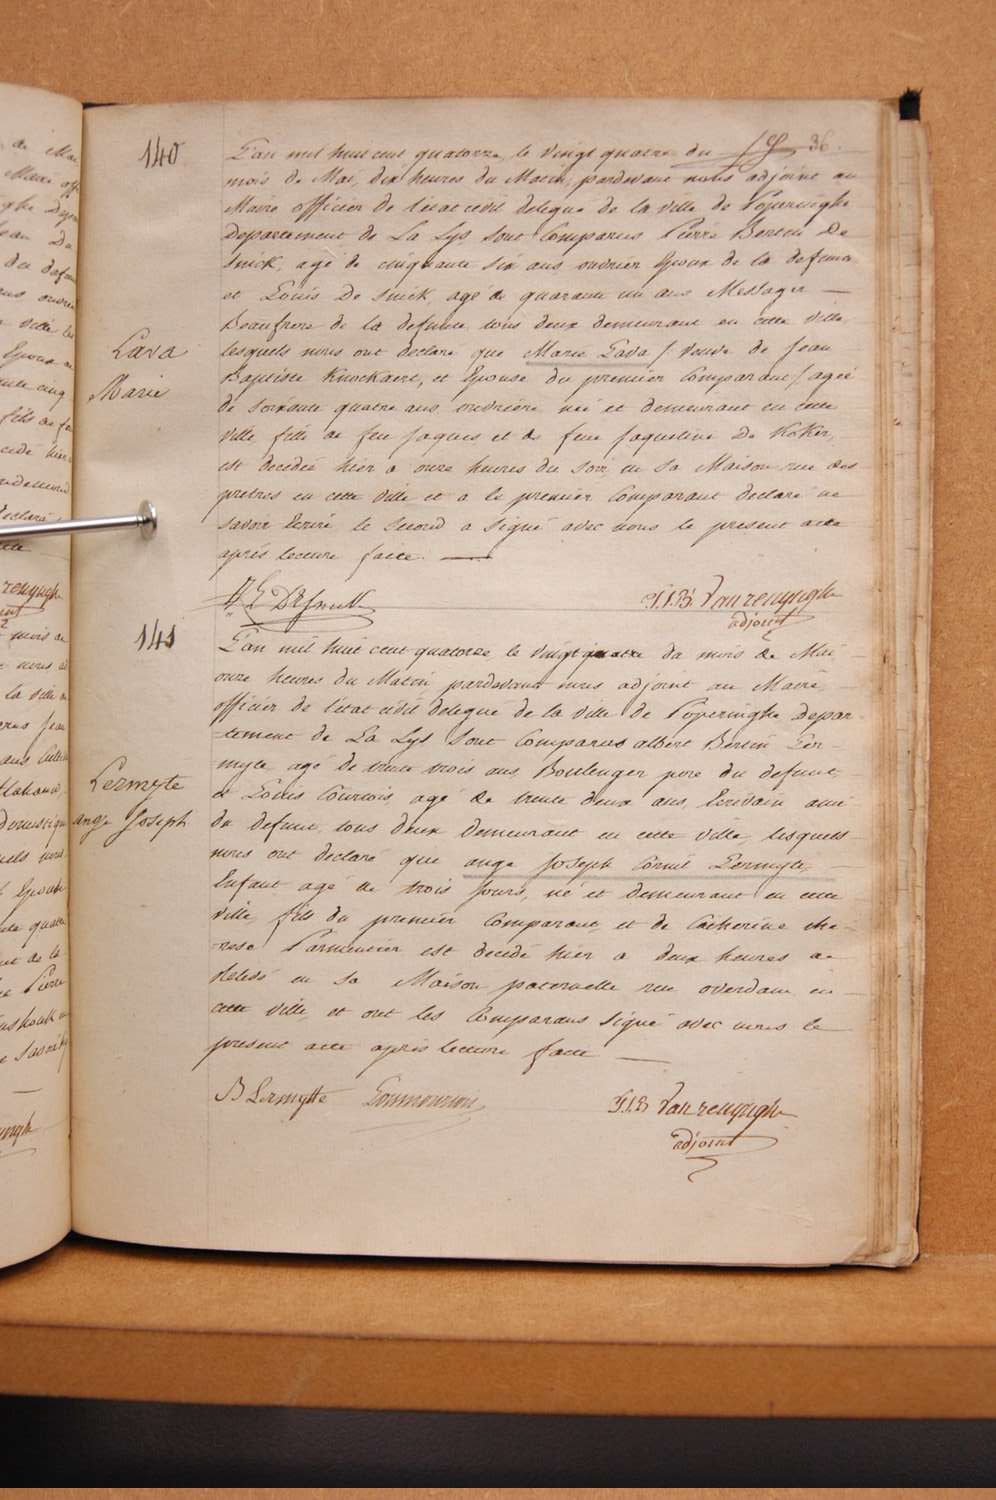 36.
140
L'an mil huit cent quatorze, le vingt quatre du
mois de Mai, dix heures du Matin, pardevant nous adjoint au
Maire officier de l'etat civil delegué de la ville de Poperinghe
Departement de La Lys sont Comparus Pierre Bertin De
Snick, agé de cinquante six ans ouvrier Epoux de la defunte
et Louis De Snick, agé de quarante un ans Messager —
Beaufrere de la defunte, tous deux demeurant en cette ville,
lesquels nous ont declaré que Marie Lava / veuve de Jean
Baptiste Knockaert, et Epouse du premier Comparant / ageé
de soixante quatre ans, ouvriere neé et demeurant en cette
ville, fille de feu Jaques et de feue Jaqueline De KoKer,
est decedeé hier a onze heures du soir, en sa Maison rue des
pretres en cette ville et a le premier Comparant declaré ne
savoir Ecrire le second a signé avec nous le present acte
aprés lecture faite. —
Lava
Marie
L DeSnick
P.J.B. Vanrenynghe
adjoint
141
L'an mil huit cent quatorze le vingt quatre du mois de Mai,
onze heures du Matin, pardevant nous adjoint au Maire,
officier de l'etat civil delegué de la ville de Poperinghe Depar-
-tement de La Lys sont Comparus albert Bertin Ler-
-myte agé de trente trois ans Boulenger pere du defunt,
et Louis Courtois, agé de trente deux ans, Ecrivain ami
du defunt, tous deux demeurant en cette ville, lesquels
nous ont declaré que ange Joseph Cornil Lermyte,
Enfant agé de trois jours, né et demeurant en cette
ville, fils du premier Comparant, et de Catherine the-
-rese Parmentier est decedé hier a deux heures de
releveé en sa Maison paternelle rue overdam, en
cette ville, et ont les Comparans signé avec nous le
present acte aprés lecture faite —
Lermyte
ange Joseph
B Lermytte
P.J.B Vanrenynghe
adjoint